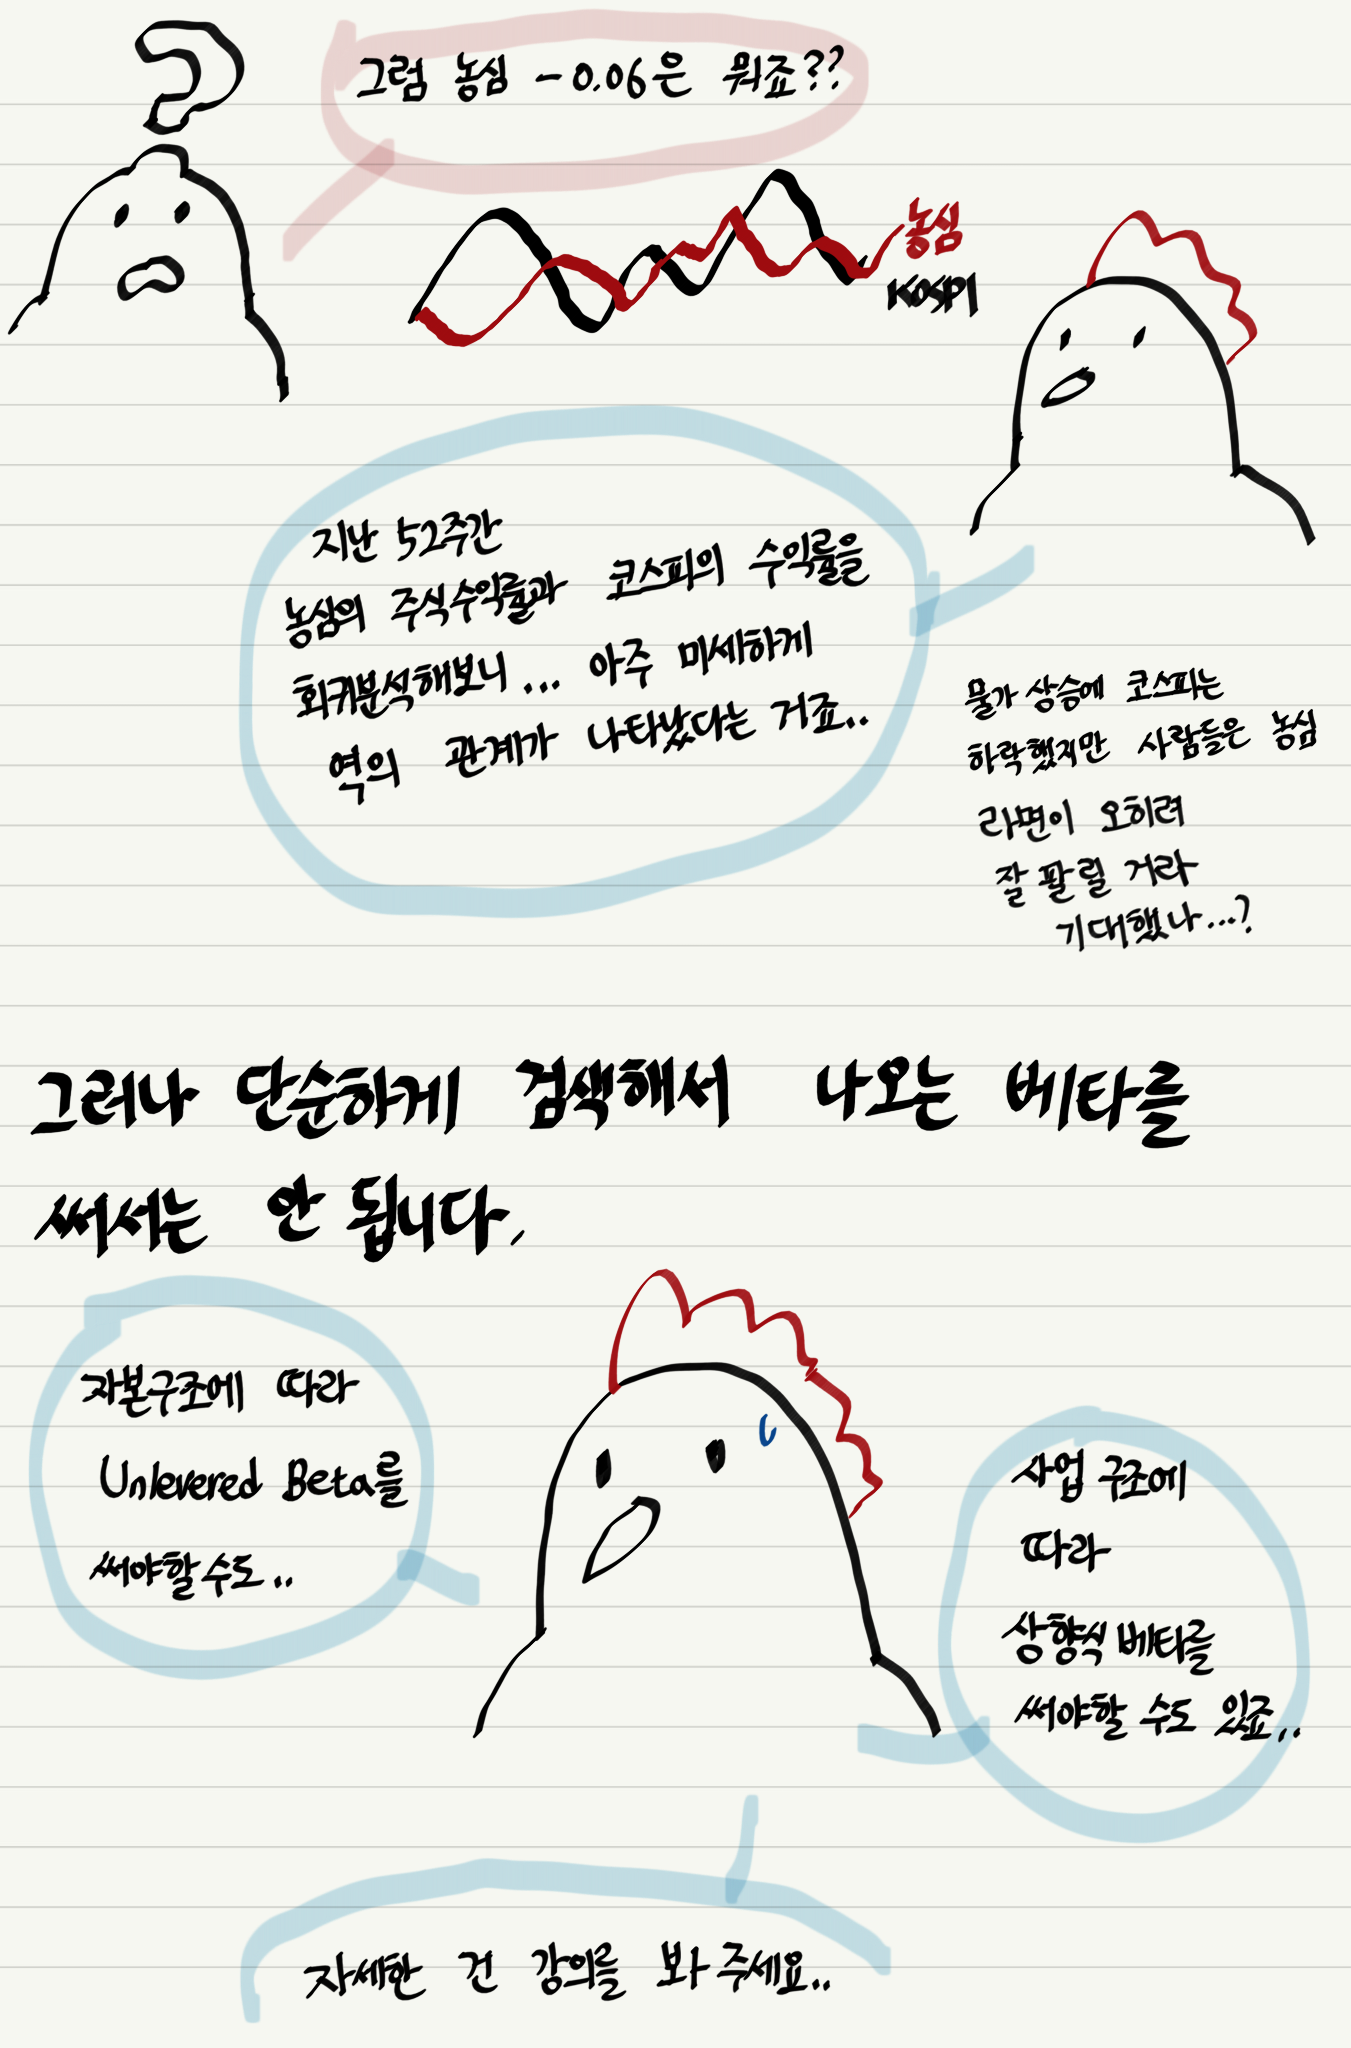 그럼 농심 -0.06은 뭐죠??
농심
KOSPI
지난 52주간
농심의 주식수익률과 코스피의 수익률을
회귀분석해보니... 아주 미세하게
역의 관계가 나타났다는 거죠..
물가 상승에 코스피는
하락했지만 사람들은 농심
라면이 오히려
잘 팔릴 거라
기대했나...?
그러나 단순하게 검색해서 나오는 베타를
써서는 안 됩니다.
자본구조에 따라
Unlevered Beta를
써야할 수도..
사업 구조에
따라
상향식 베타를
써야할 수도 있죠..
자세한 건 강의를 봐 주세요..